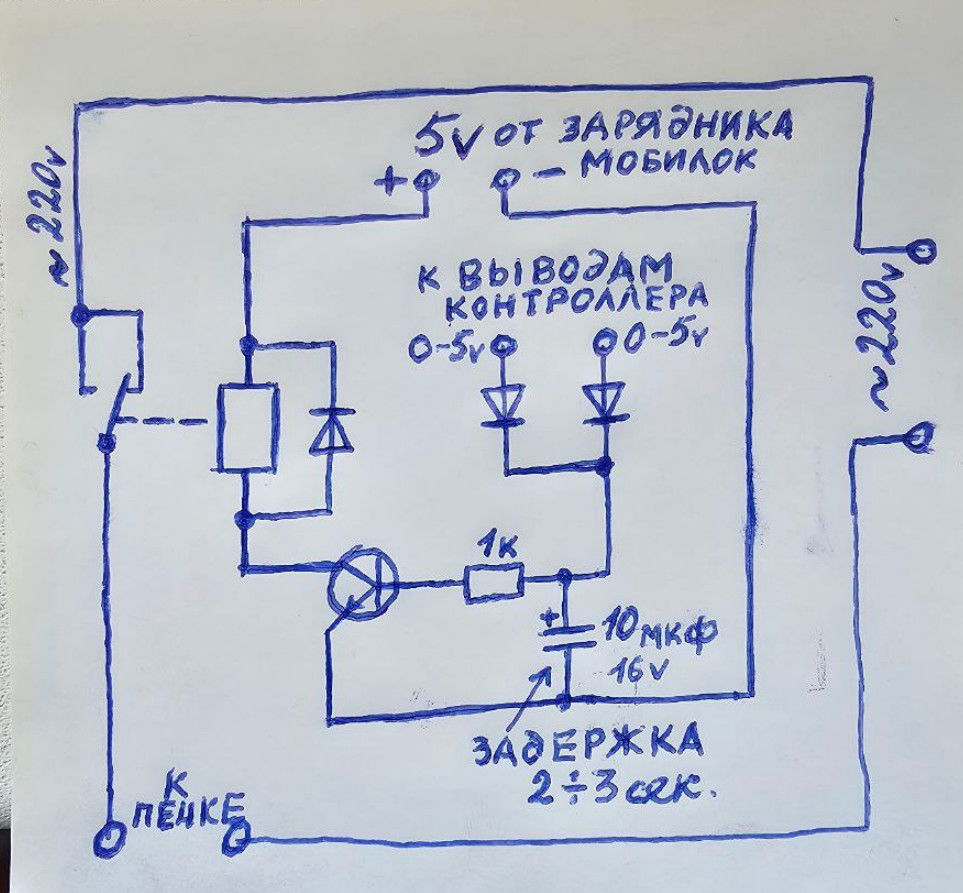 5v от ЗАРЯДНИКА
МОБИЛОК
+
−
~220v
К ВЫВОДАМ
КОНТРОЛЛЕРА
0-5v
0-5v
~220v
1К
+
10 МКФ
16v
ЗАДЕРЖКА
2÷3 сек.
К
ПЕЧКЕ